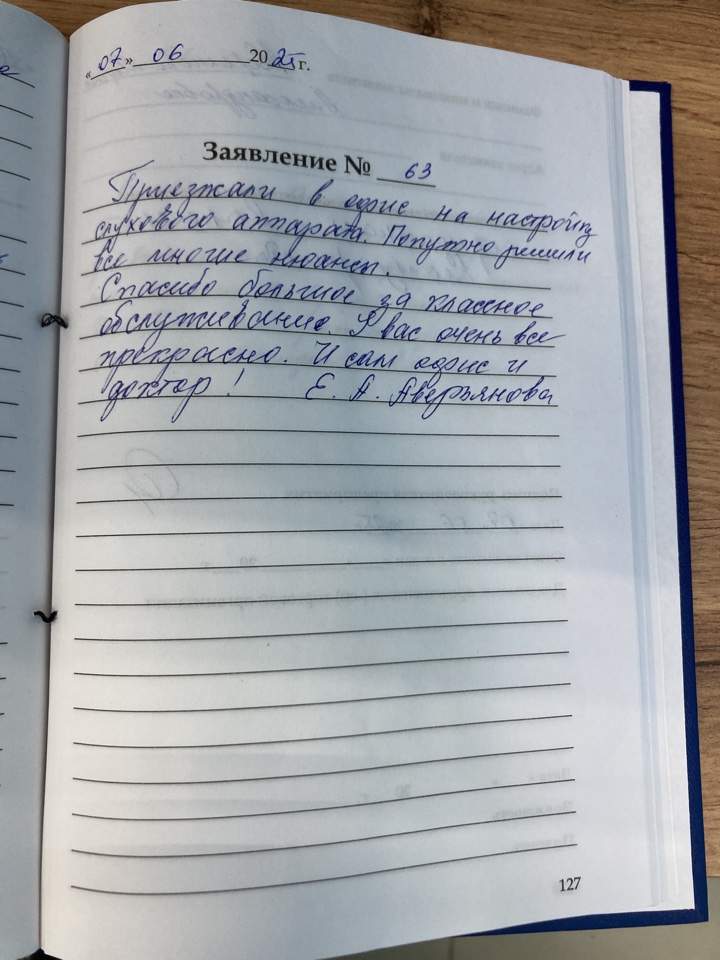 «07» 06 2025 г.
Заявление № 63
Приезжали в офис на настройку
слухового аппарата. Попутно решили
все многие нюансы.
Спасибо большое за классное
обслуживание. У вас очень все
прекрасно. И сам офис и
доктор! Е. А. Аверьянова
127